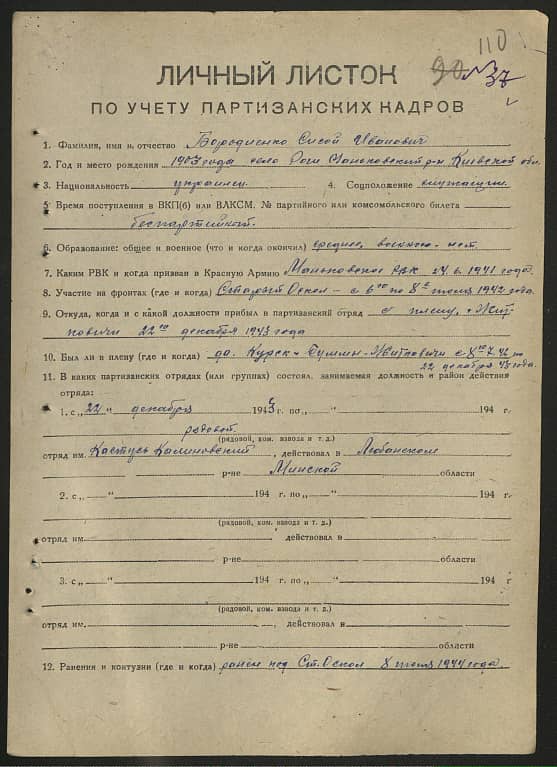 110
90 № 37
ЛИЧНЫЙ ЛИСТОК
ПО УЧЕТУ ПАРТИЗАНСКИХ КАДРОВ
1. Фамилия, имя и отчество Бородиенко Сисой Иванович
2. Год и место рождения 1903 года село Роги Маньковский р-н Киевской обл.
3. Национальность украинец 4. Соцположение служащий.
5. Время поступления в ВКП(б) или ВЛКСМ, № партийного или комсомольского билета
беспартийный.
6. Образование: общее и военное (что и когда окончил) среднее, военного - нет.
7. Каким РВК и когда призван в Красную Армию Маньковское РВК 24.6.1941 года.
8. Участие на фронтах (где и когда) Старый Оскол - с 6го по 8е июля 1942 года.
9. Откуда, когда и с какой должности прибыл в партизанский отряд с плену, г. Жит-
ковичи 22го декабря 1943 года
10. Был ли в плену (где и когда) да. Курск - - Житковичи с 8го 7.42 по
22 декабря 43 года.
11. В каких партизанских отрядах (или группах) состоял, занимаемая должность и район действия
отряда:
1. с „22“ декабря 1943 г. по „ “ 194 г.
рядовой.
(рядовой, ком. взвода и т. д.)
отряд им. Кастусь Калиновский, действовал в Любанском
р-не Минской области
2. с „ “ 194 г. по „ “ 194 г.
(рядовой, ком. взвода и т. д.)
отряд им. действовал в
р-не области
3. с „ “ 194 г. по „ “ 194 г
(рядовой, ком. взвода и т. д.)
отряд им. , действовал в
р-не области
12. Ранения и контузии (где и когда) ранен под Ст. Оскол 8 июля 1944 года.